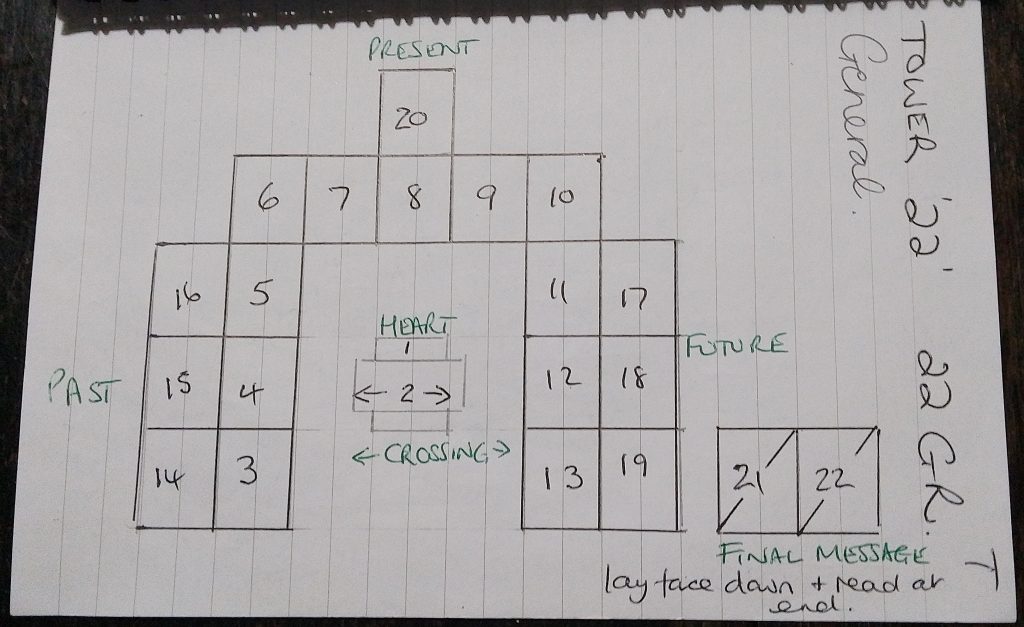 TOWER '22' 22 GR. T
General.
PRESENT
20
6 7 8 9 10
16 5 11 17
HEART
1
FUTURE
PAST 15 4 ← 2 → 12 18
← CROSSING →
14 3 13 19
21 22
FINAL MESSAGE
lay face down + read at
end.